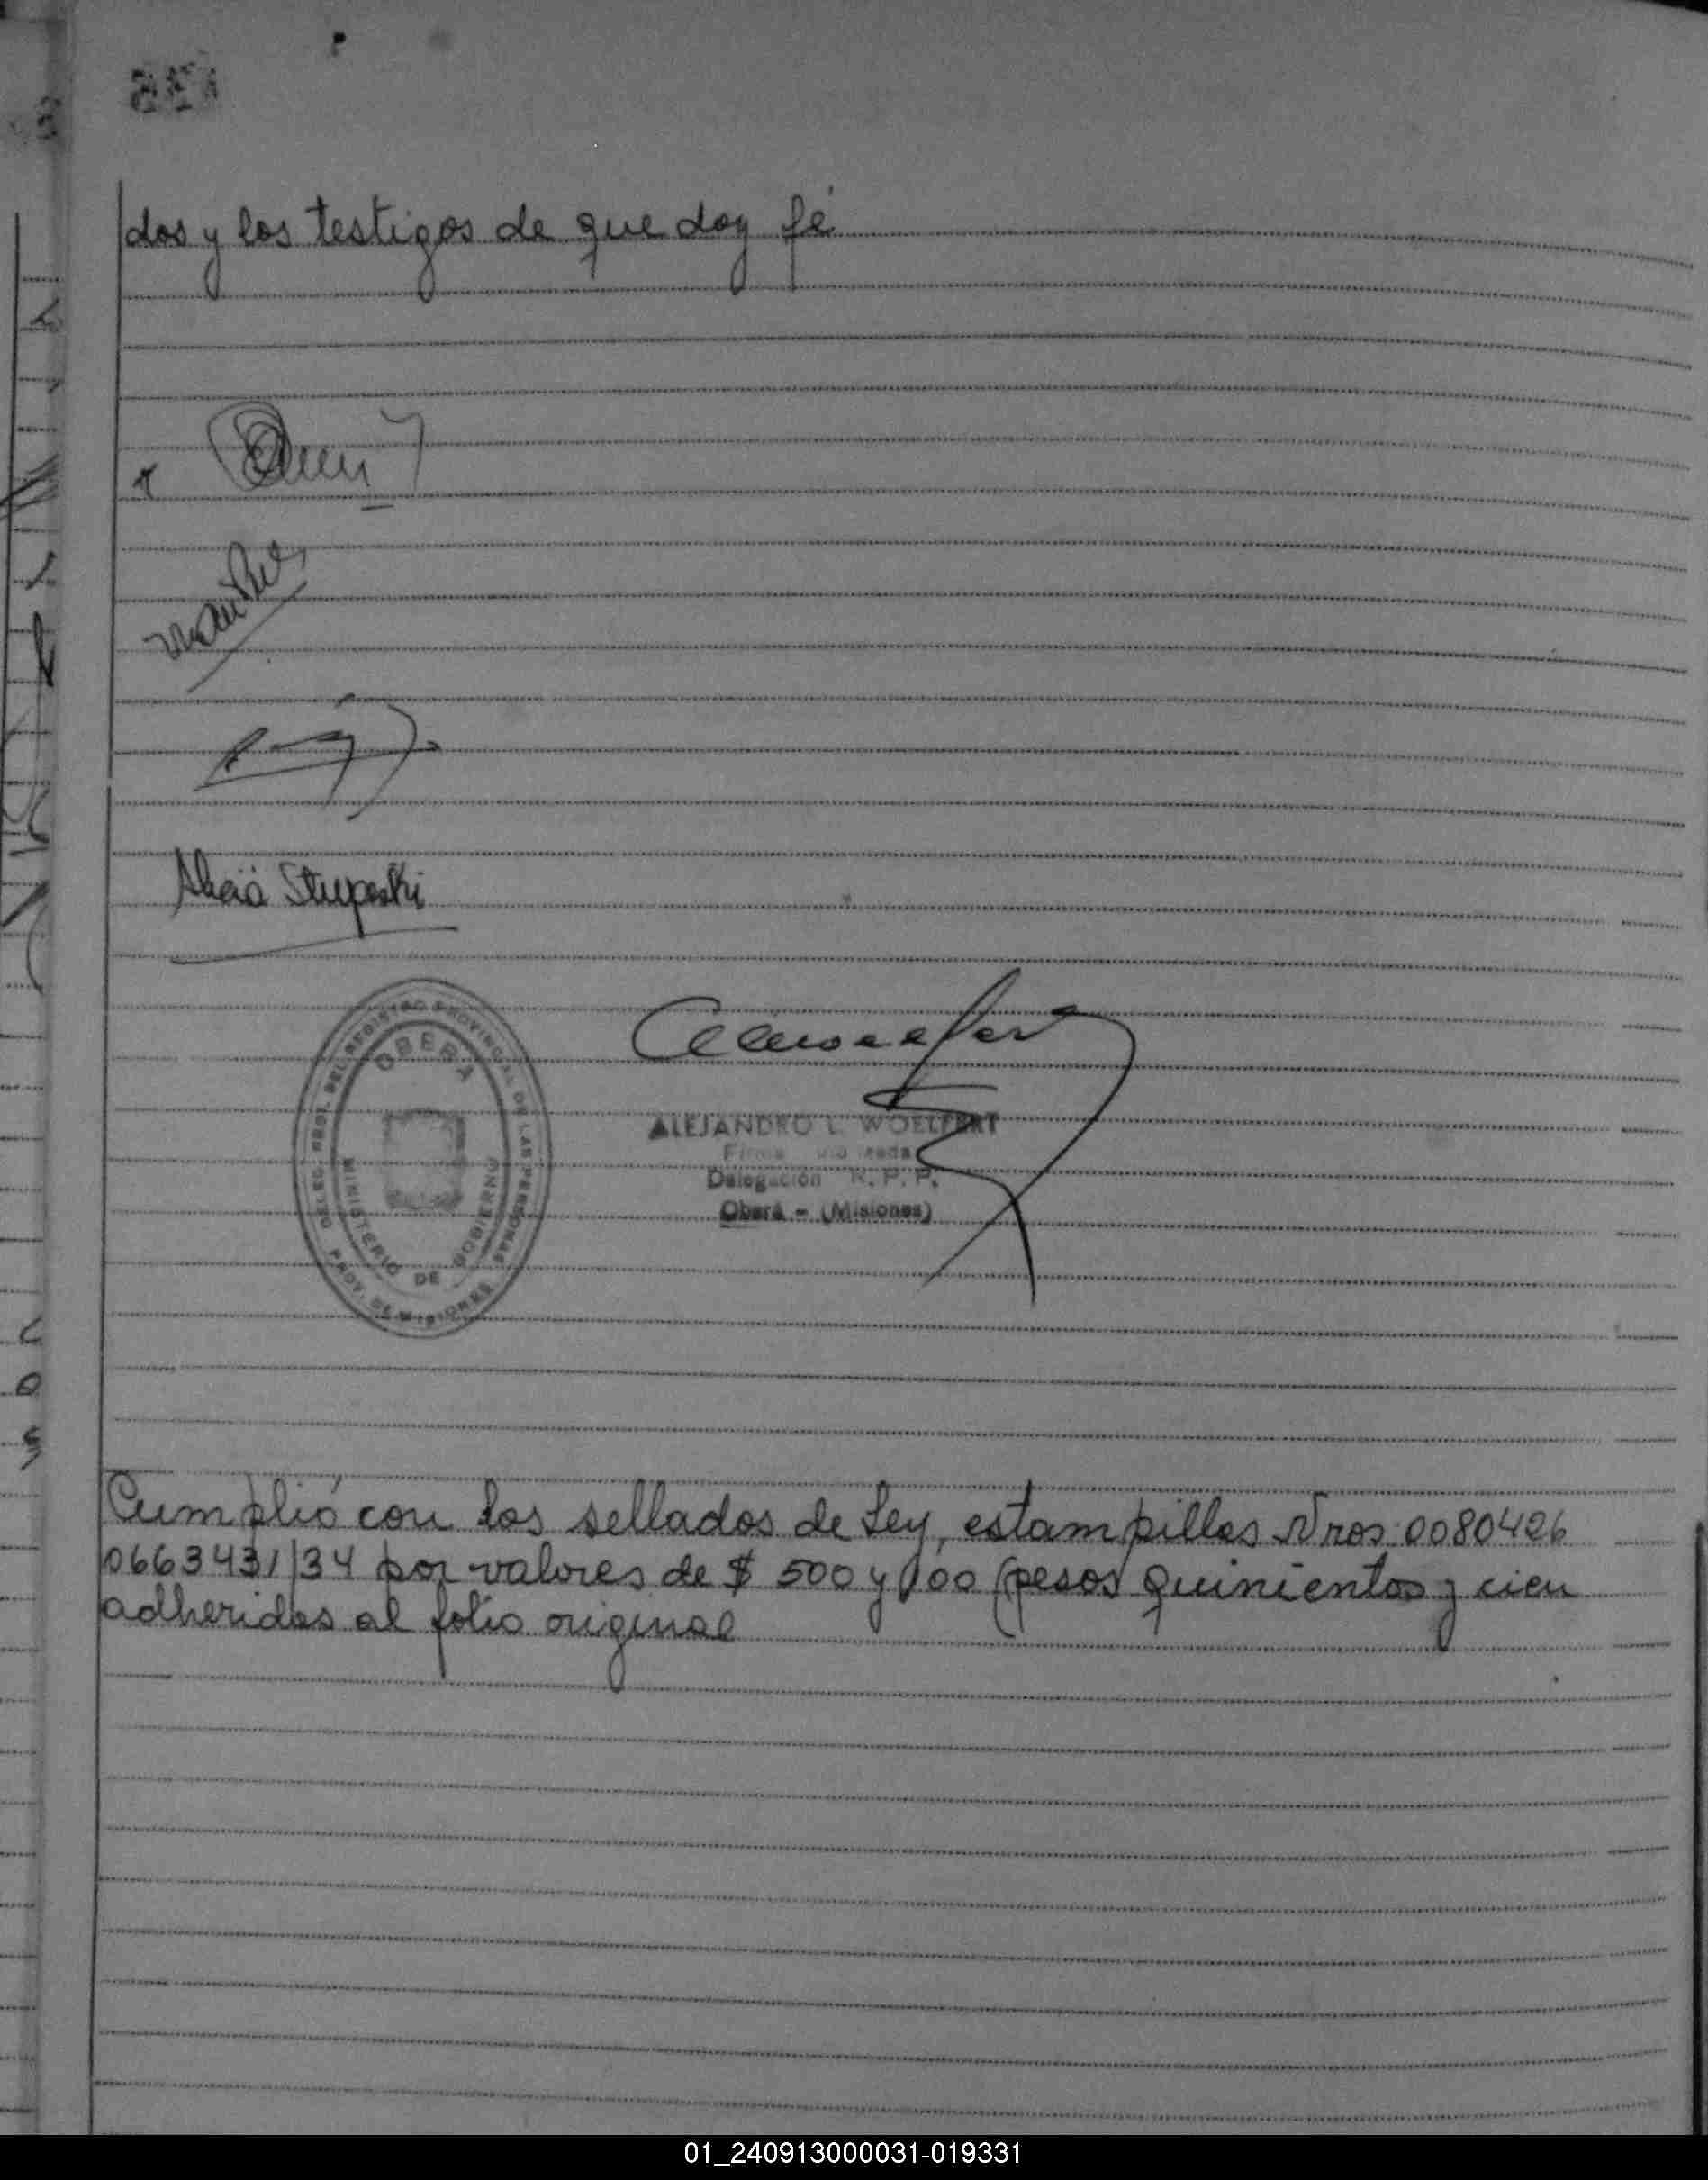 dos y los testigos de que doy fé
Alicia Stuposki
OBERA
DELEG. PROV. DEL REGISTRO PROVINCIAL DE LAS PERSONAS
MINISTERIO DE GOBIERNO
PROV. DE MISIONES
ALEJANDRO L. WOELFERT
Firma
Delegación R. P. P.
Oberá - (Misiones)
Cumplió con los sellados de Ley, estampillas Nros: 0080426
0663431/34 por valores de $ 500 y 100 (pesos quinientos y cien
adheridas al folio original
01_240913000031-019331